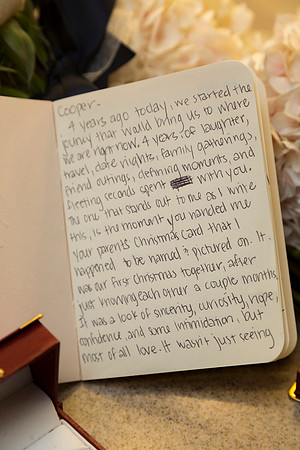 Cooper.
4 years ago today, we started the
journey that would bring us to where
we are right now. 4 years of laughter,
travel, date nights, family gatherings,
friend outings, defining moments, and
fleeting seconds spent with you.
The one that stands out to me as I write
this, is the moment you handed me
your parents Christmas Card that I
happened to be named & pictured on. It
was our first Christmas together, after
just knowing each other a couple months.
It was a look of sincerity, curiosity, hope,
confidence, and some intimidation, but
most of all love. It wasn't just seeing